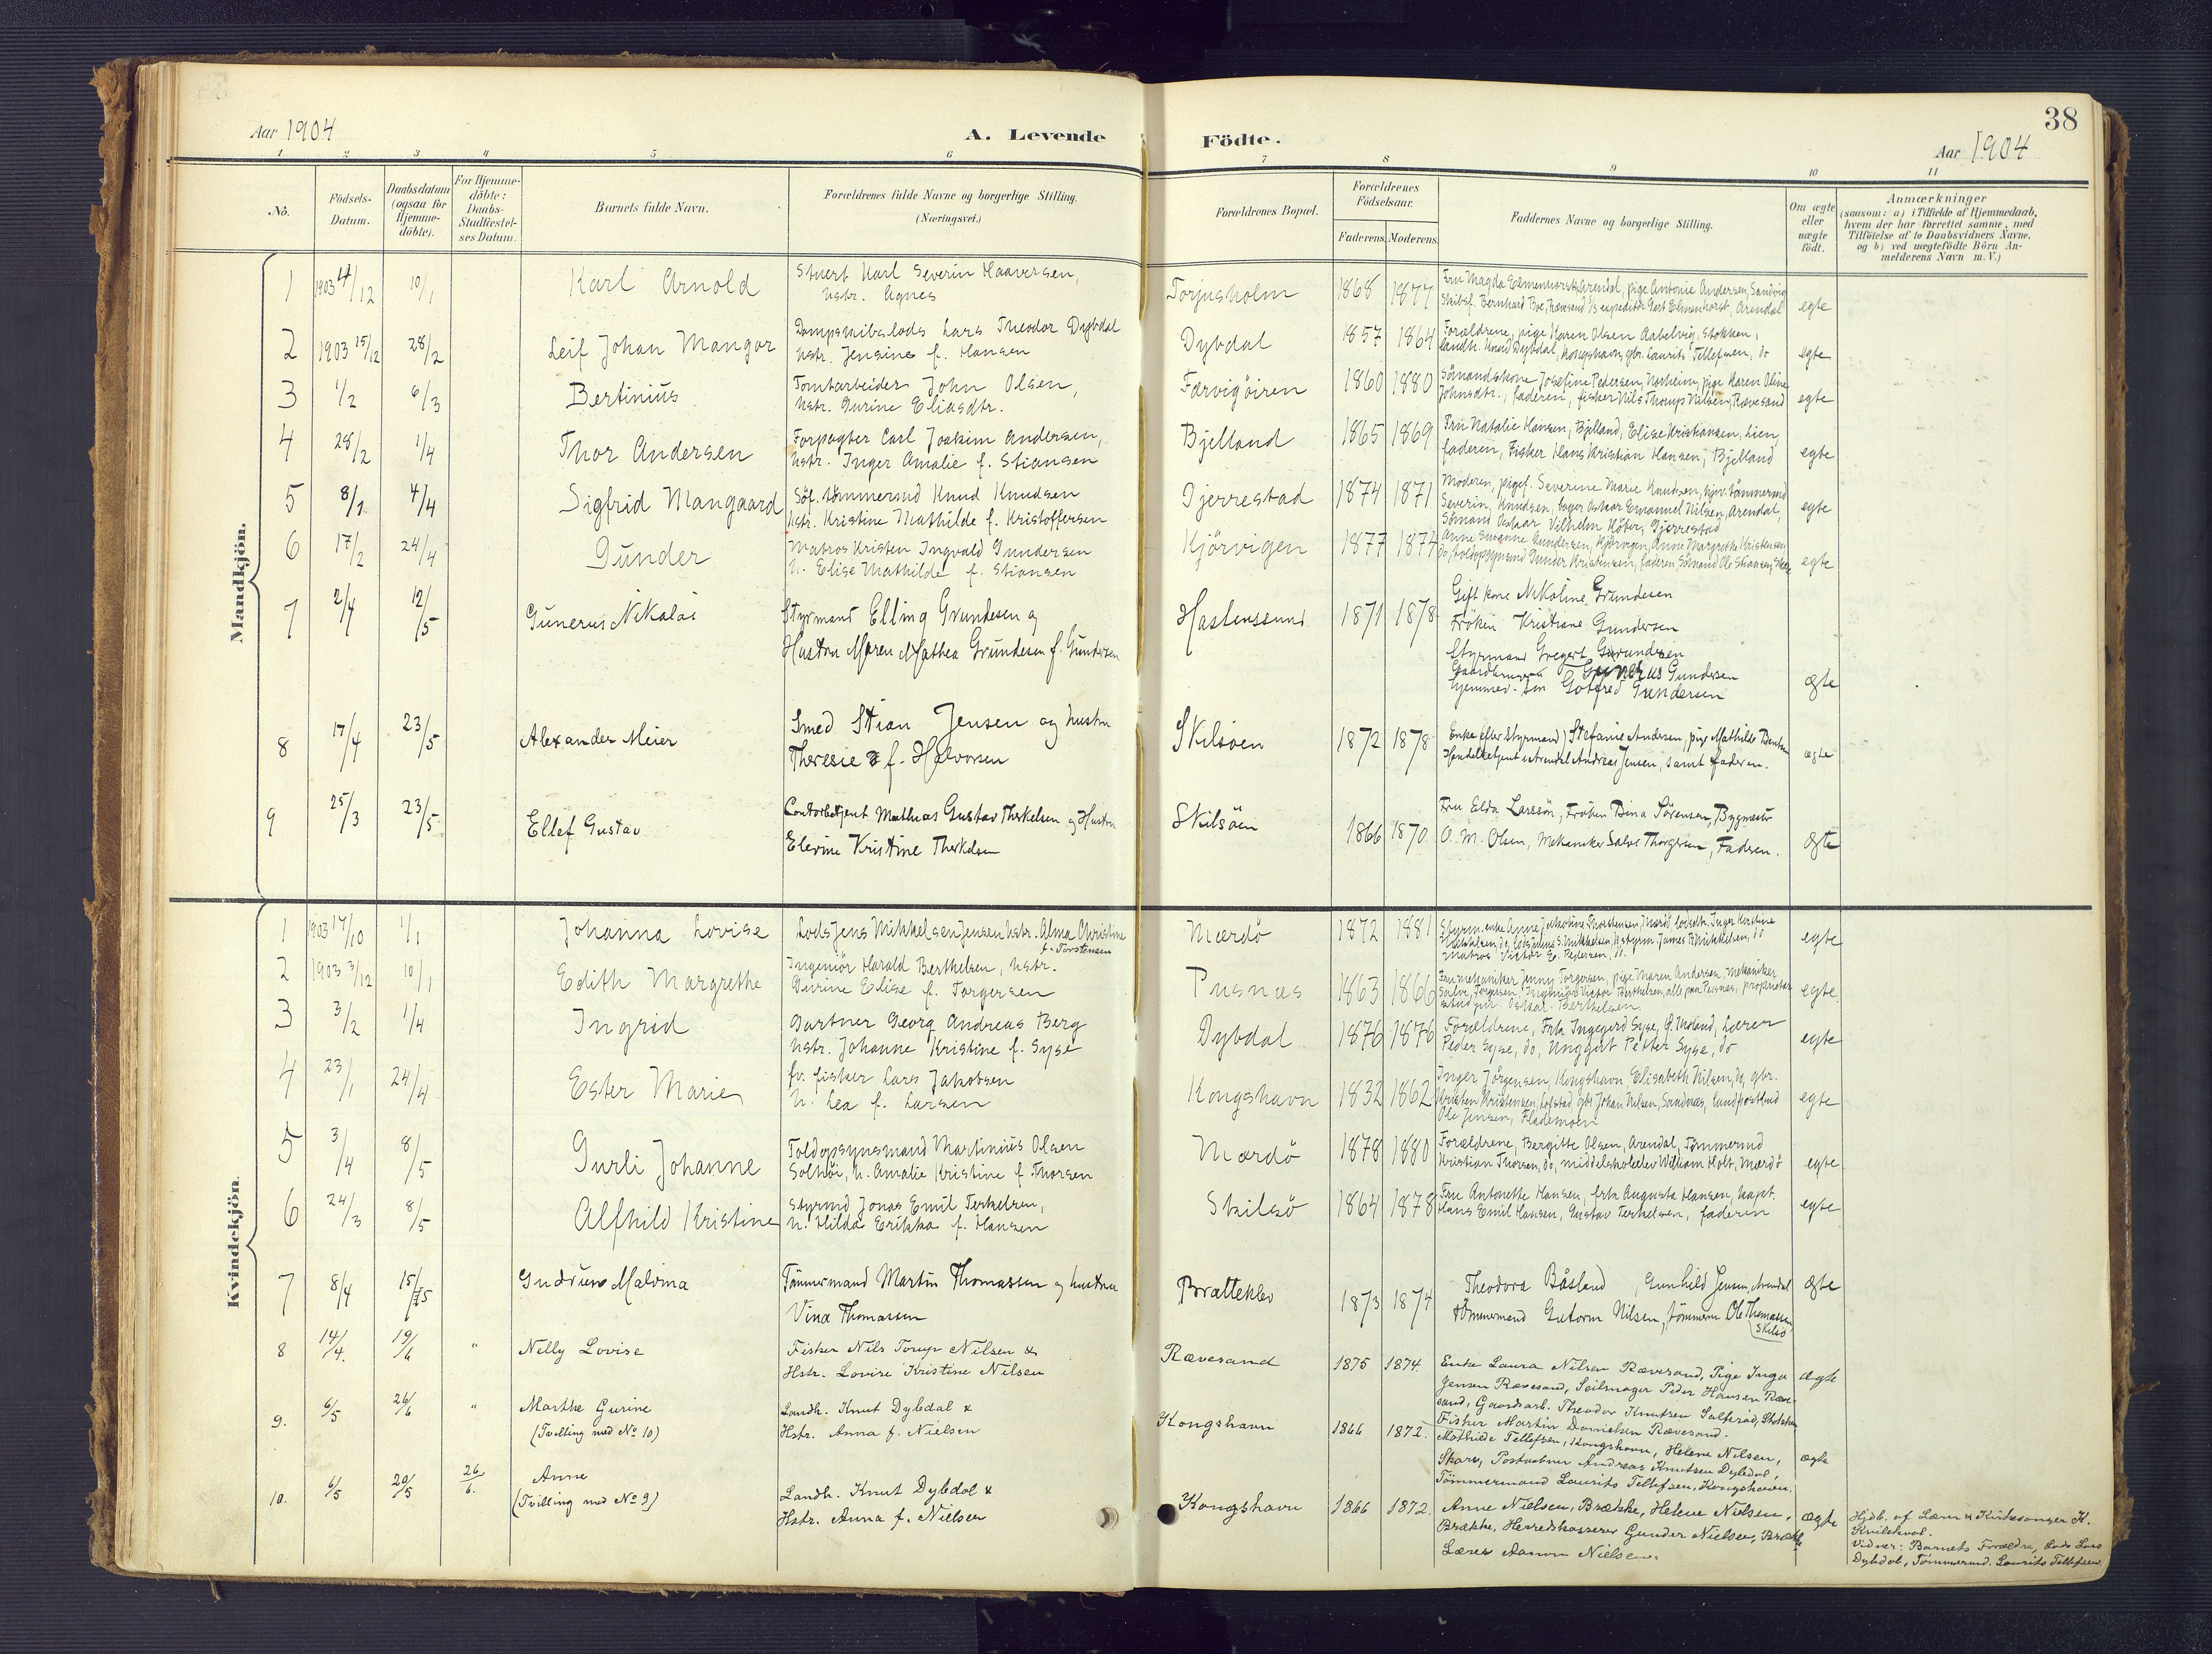 38
Aar 1904
A. Levende
Födte.
Aar 1904
1 2 3 4 5 6 7 8 9 10 11
No.
Födsels-
Datum.
Daabsdatum
(ogsaa for
Hjemme-
döbte).
For Hjemme-
döbte:
Daabs-
Stadfæstel-
ses Datum.
Barnets fulde Navn.
Forældrenes fulde Navne og borgerlige Stilling.
(Næringsvei.)
Forældrenes Bopæl.
Forældrenes
Födselsaar.
Faderens. Moderens.
Faddernes Navne og borgerlige Stilling.
Om ægte
eller
uægte
födt.
Anmærkninger
(saasom: a) i Tilfælde af Hjemmedaab,
hvem der har forrettet samme, med
Tilföielse af to Daabsvidners Navne.
og b) ved uægtefödte Börn An-
melderens Navn m. V.)
Mandkjön.
1 1903 14/12 10/1 Karl Arnold
Stuert Karl Severin Haaversen,
Hstr. Agnes
Torjusholm 1868 1877
Fru Magda Elmenhorst, Arendal, pige Antonie Andersen, Sandvig
skibsf. Bernhard Boe, Rævesand, expeditör Gert Elmenhorst, Arendal
egte
2 1903 15/12 28/2 Leif Johan Mangor
Dampskibslods Lars Theodor Dybdal
Hstr. Jensine f. Hansen
Dybdal 1857 1864
Forældrene, pige Karen Olsen Aabelvig, Stokken,
landh. Knud Dybdal, Kongshavn, gbr. Laurits Tellefsen, do
egte
3 1/2 6/3 Bertinius
Tomtarbeider John Olsen,
Hstr. Gurine Eliasdtr.
Færvigöiren 1860 1880
Sömandskone Josefine Pedersen, Norheim, pige Karen Oline
Johnsdtr., faderen, fisker Nils Thorup Nilsen, Rævesand
egte
4 28/2 1/4 Thor Andersen
Forpagter Carl Joakim Andersen,
Hstr. Inger Amalie f. Stiansen
Bjelland 1865 1869
Fru Natalie Hansen, Bjelland, Elise Kristiansen, Lien,
faderen, Fisker Hans Kristian Hansen, Bjelland
egte
5 8/1 4/4 Sigfrid Mangaard
Söf. tömmermd Knud Knudsen
Hstr. Kristine Mathilde f. Kristoffersen
Gjerrestad 1874 1871
Moderen, pige Severine Marie Knudsen, tömmermd
Severin Knudsen, bager Oskar Emanuel Nilsen, Arendal,
Sömand Oskar Vilhelm Höber, Gjerrestad
egte
6 17/2 24/4 Gunder
Matros Kristen Ingvald Gundersen
H. Elise Mathilde f. Stiansen
Kjörvigen 1877 1874
Anne Susanne Gundersen, Kjörvigen, Anne Margrethe Kristensen
do, toldopsynsmd Gunder Kristensen, faderen, Sömand Ole Stiansen,
egte
7 2/4 12/5 Gunerius Nikolai
Styrmand Elling Grundesen og
Hustru Maren Mathea Grundesen f. Gundersen
Hastensund 1871 1878
Gift kone Nikoline Grundesen
Fröken Kristiane Gundersen
Styrmand Gregert Grundesen
Gaardbruger Gunerius Gundersen
Gotfred Gundersen
ægte
8 17/4 23/5 Alexander Meier
Smed Stian Jensen og hustru
Theresie f. Halvorsen
Skilsöen 1872 1878
Enke efter styrmand Stefanie Andersen, pige Mathilde
Handelsbetjent i Arendal Andreas Jensen, samt faderen.
ægte
9 25/3 23/5 Ellef Gustav
Contorbetjent Mathias Gustav Therkelsen og Hustru
Elevine Kristine Therkelsen
Skilsöen 1866 1870
Fru Elda Larssön, Fröken Dina Sörensen, Bygmester
O. M. Olsen, Mekaniker Salve Thorgersen, Faderen.
ægte
Kvindekjön.
1 1903 17/10 1/1 Johanna Lovise
Lods Jens Mikkelsen Jensen Hstr. Alma Christine
f. Torstensen
Mærdö 1872 1881
Styrm. enke Anne Jakobine Thorstensen, Mærdö, lodsdtr. Inger Kirstine
Mikkelsen, do, lods Julius S. Mikkelsen, styrm James Mikkelsen, do
Matros Victor E. Pedersen, do.
egte
2 1903 3/12 10/1 Edith Margrethe
Ingeniör Harald Berthelsen, Hstr.
Gurine Elise f. Torgersen
Pusnæs 1863 1866
Fru mekaniker Jenny Torgersen, pige Maren Andersen, mekaniker
Salve Torgersen, Ingeniör Victor Berthelsen, alle paa Pusnæs, proprietær
Oskar Berthelsen
egte.
3 3/2 1/4 Ingrid
Gartner Georg Andreas Berg
Hstr. Johanne Kristine f. Syse
Dybdal 1876 1876
Forældrene, Frk Ingegerd Syse, Ö. Moland, Lærer
Peder Syse, do, Ungkarl Petter Syse, do
egte
4 23/1 24/4 Ester Marie
fv. fisker Lars Jakobsen
H. Lea f. Larsen
Kongshavn 1832 1862
Inger Jörgensen, Kongshavn, Elisabeth Nilsen, do, gbr.
Kristen Kristensen, Lofstad, gbr Johan Nilsen, Sandnæs, landpostbud
Ole Jensen, Flademoen
egte
5 3/4 8/5 Gurli Johanne
Toldopsynsmand Martinius Olsen
Solhöi, H. Amalie Kristine f. Thorsen
Mærdö 1878 1880
Forældrene, Bergitte Olsen, Arendal, Tömmermd
Kristian Thorsen, do, middelskoleelev William Holt, Mærdö
egte
6 24/3 8/5 Alfhild Kristine
Styrmd Jonas Emil Terkelsen,
H. Hilda Erikka f. Hansen
Skilsö 1864 1878
Fru Antonette Hansen, frk Augusta Hansen, kapt.
Hans Emil Hansen, Gustav Terkelsen, faderen
egte
7 8/4 15/5 Gudrun Malvina
Tömmermand Martin Thomassen og hustru
Vina Thomassen
Bratteklev 1873 1874
Theodora Båsland, Gunhild Jensen, Arendal
tömmermand Gutorm Nilsen, tömmerm Ole Thomassen
Skilsö
ægte
8 14/4. 19/6 " Nelly Lovise
Fisker Nils Torup Nilsen &
Hstr. Lovise Kristine Nilsen
Rævesand 1875 1874
Enke Laura Nilsen Rævesand, Pige Inga
Jensen Rævesand, Seilmager Peder Hansen Ræve-
sand, Gaardsarb. Theodor Knutsen Salterød, Stokken
Fisker Martin Danielsen Rævesand.
ægte
9. 6/5 26/6 " Marthe Gurine
(Tvilling med No 10)
Landh. Knut Dybdal &
Hstr. Anna f. Nielsen
Kongshavn 1866 1872.
Mathilde Tellefsen, Kongshavn, Helene Nilsen,
Skare, Postaabner Andreas Knutsen Dybdal,
Tömmermand Laurits Tellefsen, Kongshavn.
ægte
10. 6/5 29/5 26/6. Anne
(Tvilling med No 9)
Landh. Knut Dybdal &
Hstr. Anna f. Nielsen
Kongshavn 1866 1872.
Anne Nielsen, Brække, Helene Nielsen,
Brække, Herredskasserer Gunder Nielsen, Brække
Lærer Aanon Nielsen.
ægte
Hjdb. af Lærer & Kirkesanger K.
Kvilehval.
Vidner: Barnets Forældre, Lods Lars
Dybdal, Tömmermd. Laurits Tellefsen